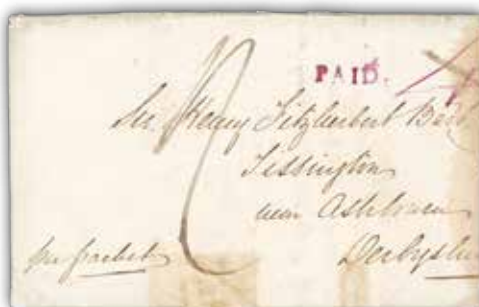 PAID.
Sir Henry Fitzherbert Bart
Tissington
near Ashbourn
Derbyshire
per packet